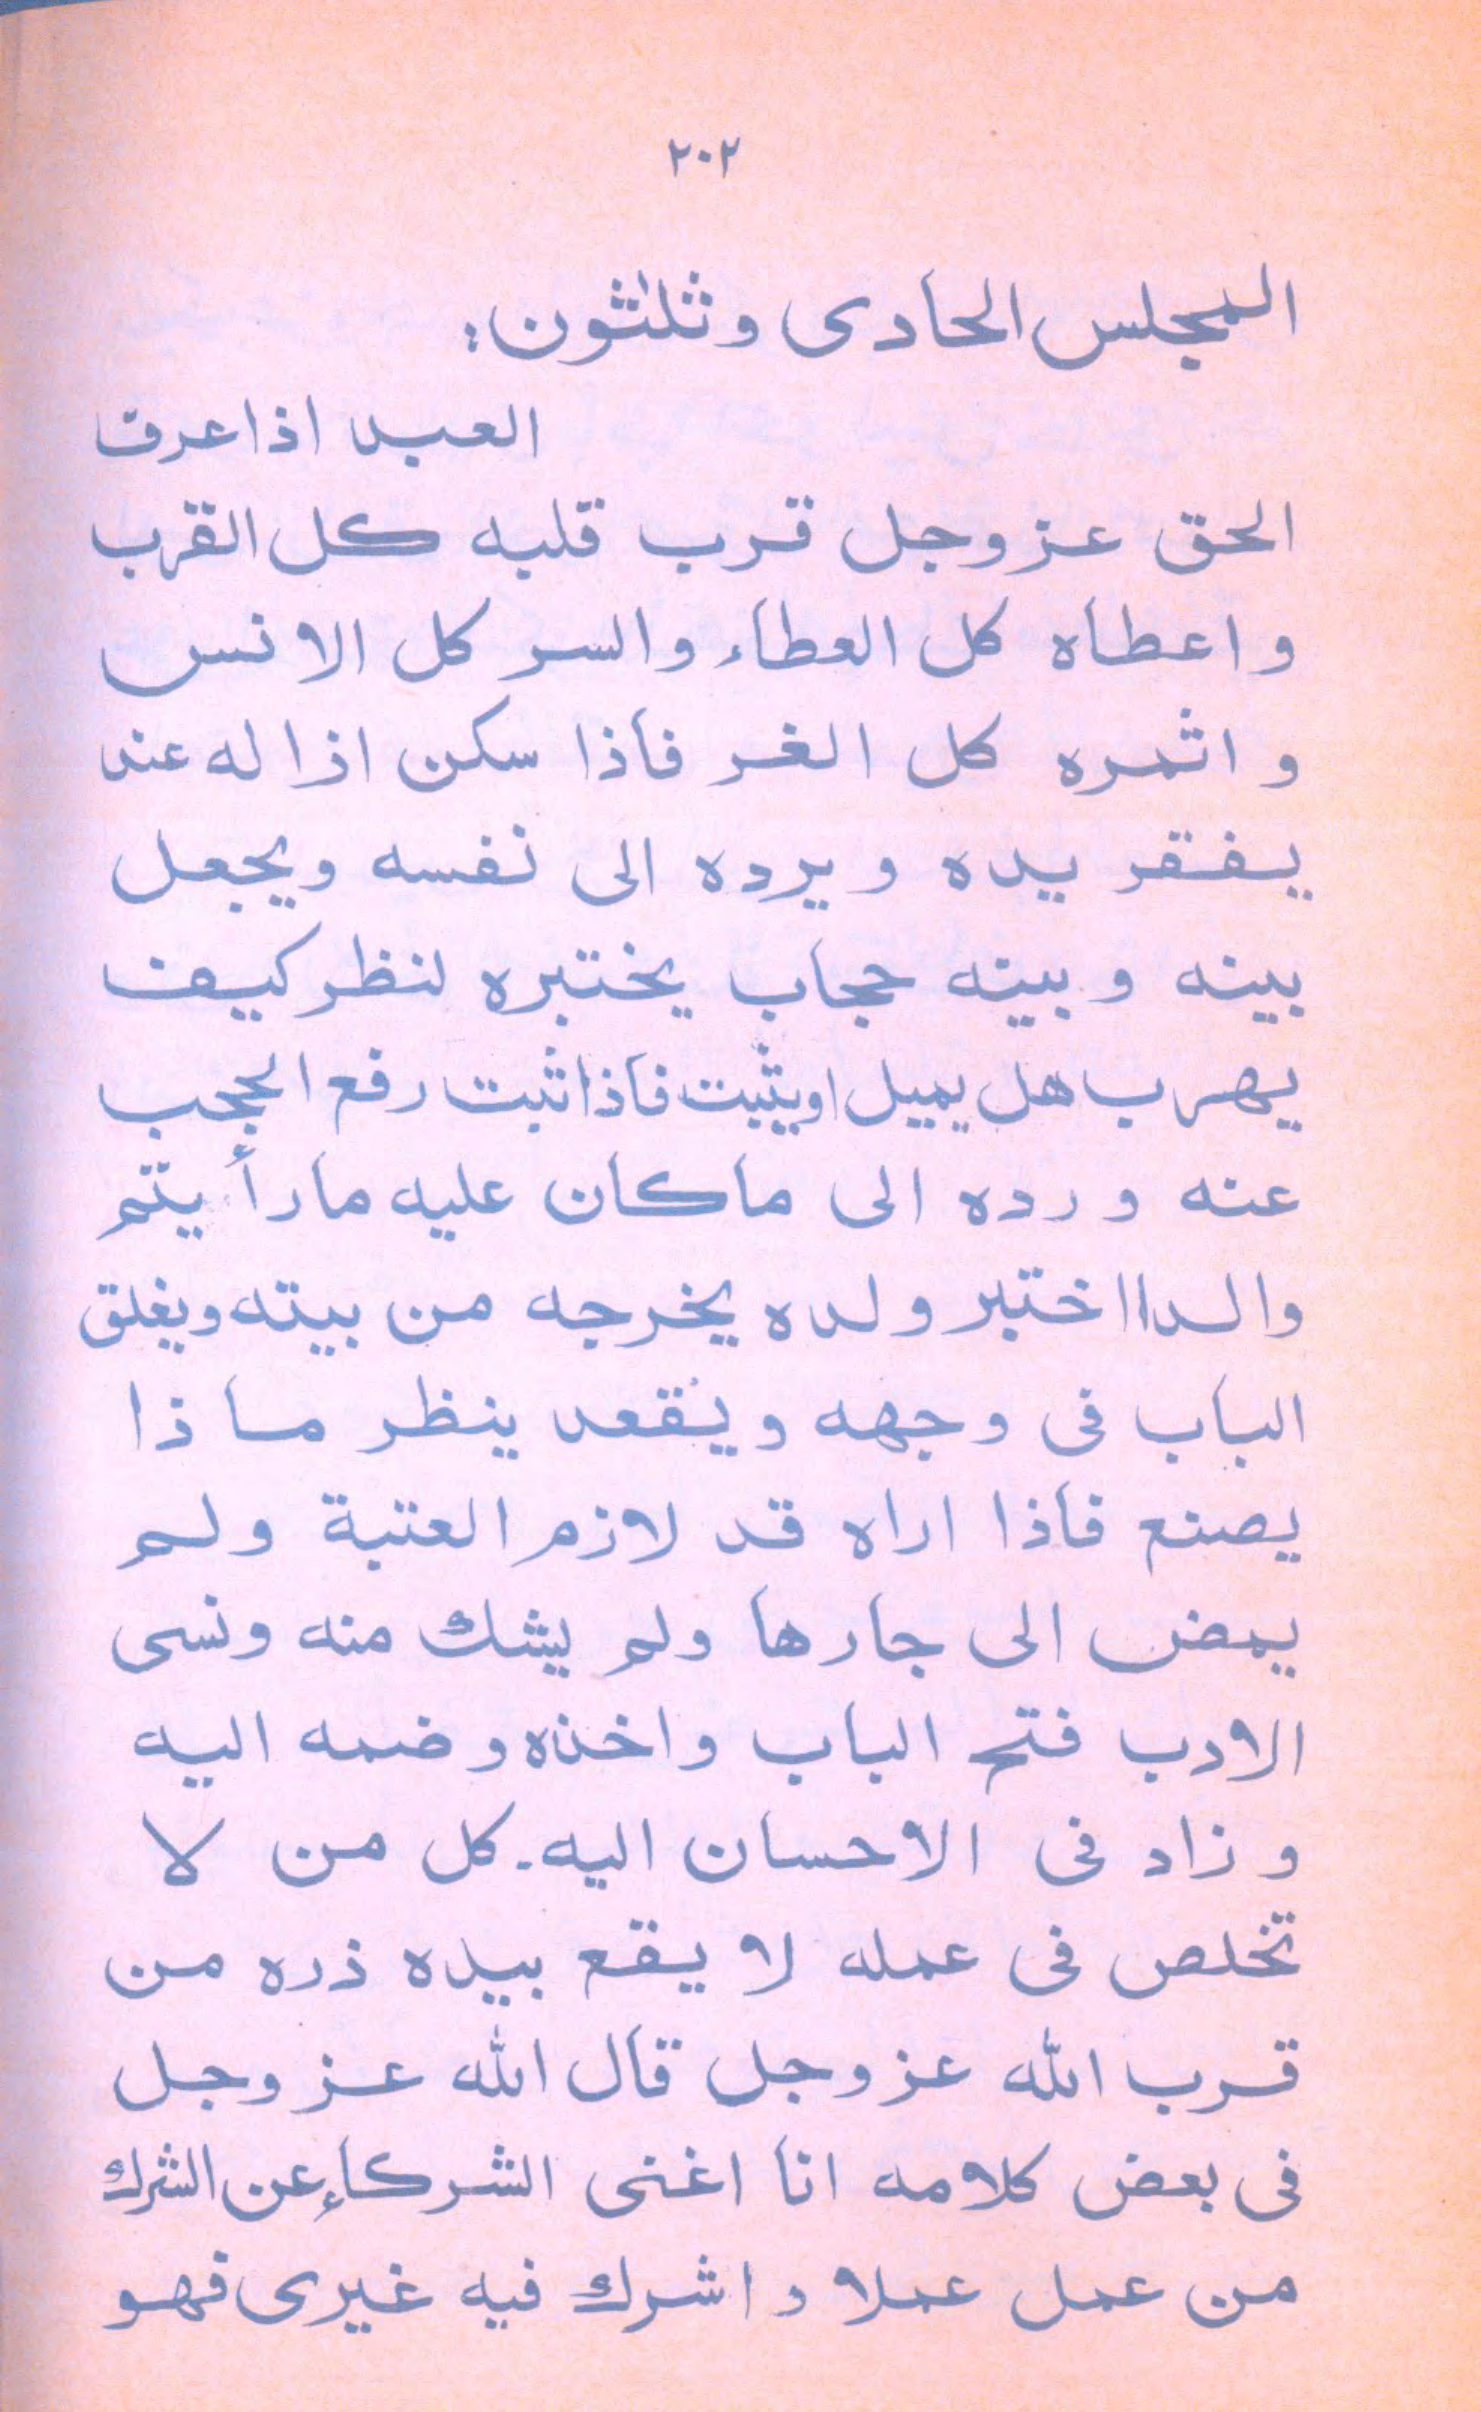 ٢٠٢
المجلس الحادى وثلثون:
العبد اذا عرف
الحق عز وجل قرب قلبه كل القرب
واعطاه كل العطاء والسر كل الانس
واثمره كل الغر فاذا سكن اذا له عند
يفقر يده ويرده الى نفسه ويجعل
بينه وبينه حجاب يختبره لنظر كيف
يهرب هل يميل او يثبت فاذا ثبت رفع الحجب
عنه ورده الى ما كان عليه ما رأيتم
والدا اختبر ولده يخرجه من بيته ويغلق
الباب فى وجهه ويقعد ينظر ما ذا
يصنع فاذا اراه قد لازم العتبة ولم
يمض الى جارها ولم يشك منه ونسى
الادب فتح الباب واخذه وضمه اليه
وزاد فى الاحسان اليه. كل من لا
تخلص فى عمله لا يقع بيده ذره من
قرب الله عز وجل قال الله عز وجل
فى بعض كلامه انا اغنى الشركاء عن الشرك
من عمل عملا واشرك فيه غيرى فهو